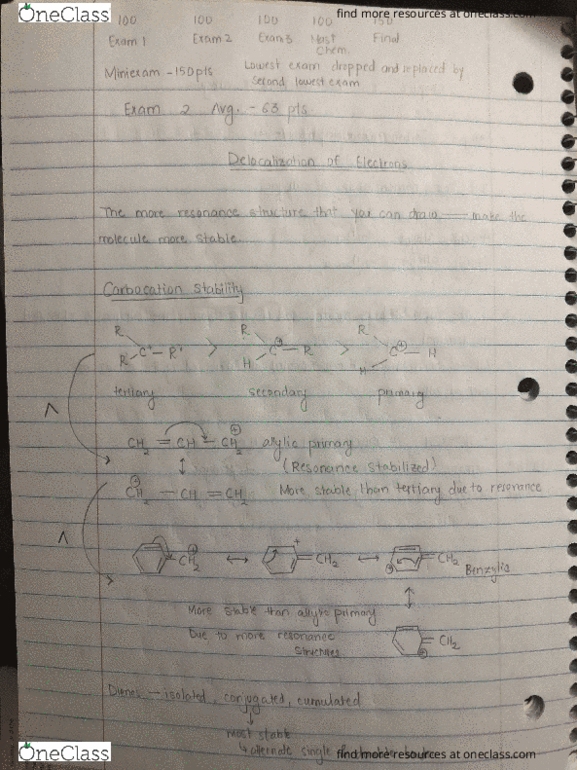 OneClass
find more resources at oneclass.com
100 100 100 100
Exam 1 Exam 2 Exam 3 Mast. Chem. Final
Miniexam - 150pts Lowest exam dropped and replaced by
second lowest exam
Exam 2 Avg. - 63 pts
Delocalization of Electrons
The more resonance structure that you can draw — make the
molecule more stable.
Carbocation Stability
R R R
R - C⁺ - R' > H C⊕ - R > H C⊕ - H
tertiary secondary primary
CH₂ = CH - CH₂ ⊕ allylic primary
(Resonance stabilized)
⊕ CH₂ - CH = CH₂ More stable than tertiary due to resonance
⊕ CH₂ ↔ + = CH₂ ↔ ⊕ = CH₂ Benzylic
More stable than allylic primary
Due to more resonance
structures
= CH₂ ⊕
Dienes - isolated, conjugated, cumulated
most stable
↳ alternate single
OneClass
find more resources at oneclass.com